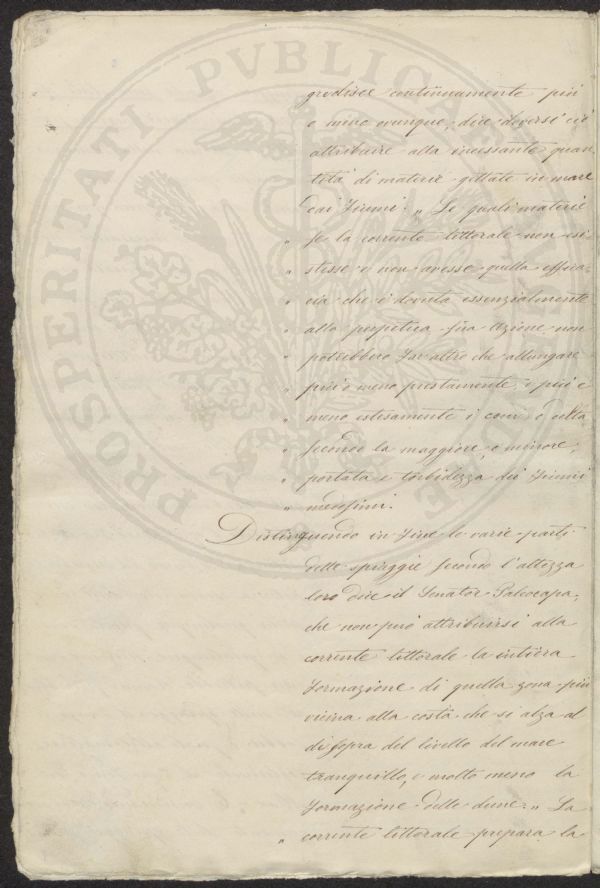 gredisce continuamente più
o meno ovunque, dice doversi ciò
attribuire alla incessante quan-
tità di materie gettate in mare
dai Fiumi. „ Le quali materie
„ se la corrente littorale non esi-
„ stesse e non avesse quella effica-
„ cia che è dovuta essenzialmente
„ alla perpetua sua azione non
„ potrebbero far altro che allungare
„ più o meno prestamente, e più e
„ meno estesamente i coni o delta
„ secondo la maggiore, o minore,
„ portata e torbidezza dei Fiumi
„ medesimi.
Distinguendo in fine le varie parti
delle spiaggie secondo l'altezza
loro dice il Senator Paleocapa,
che non può attribuirsi alla
corrente littorale la intiera
formazione di quella zona più
vicina alla costa che si alza al
disopra del livello del mare
tranquillo, e molto meno la
formazione delle dune. „ La
„ corrente littorale prepara la
PROSPERITATI PVBLICAE